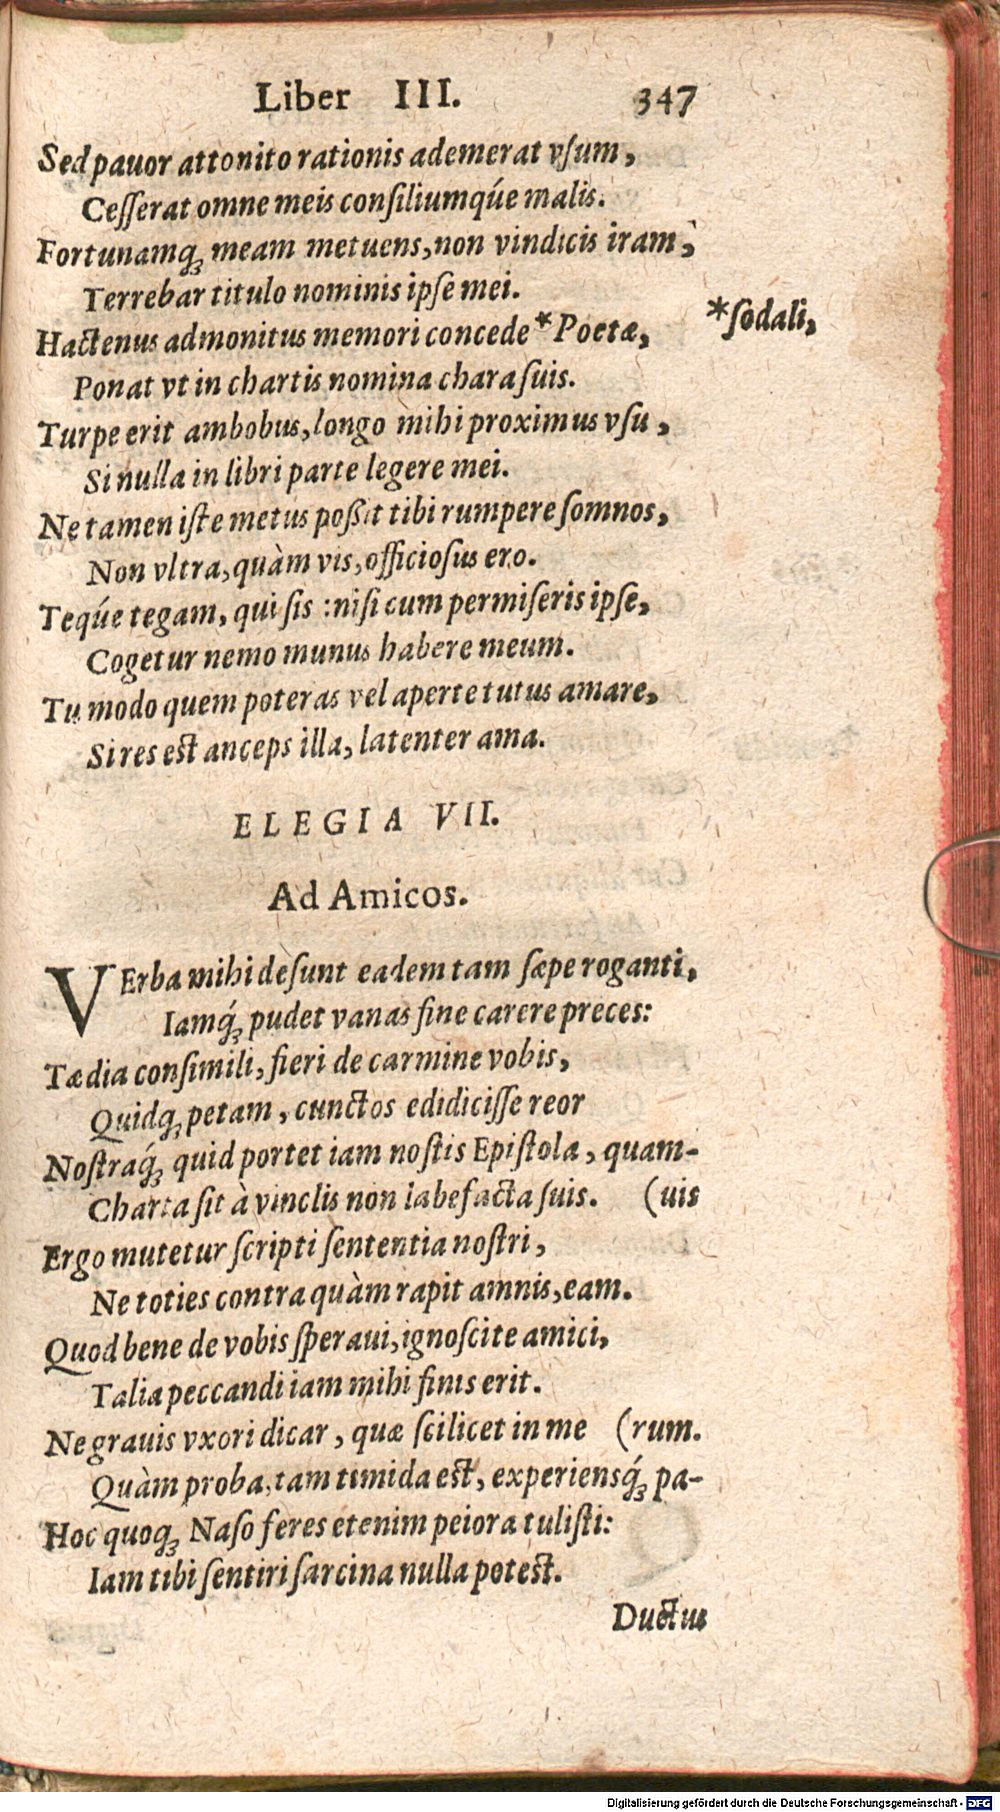 Liber III. 347
Sed pauor attonito rationis ademerat vſum,
Ceſſerat omne meis conſiliumqúe malis.
Fortunamq́ꝫ meam metuens, non vindicis iram,
Terrebar titulo nominis ipſe mei.
Hactenus admonitus memori concede * Poetæ, *ſodali,
Ponat vt in chartis nomina chara ſuis.
Turpe erit ambobus, longo mihi proximus vſu,
Si nulla in libri parte legere mei.
Ne tamen iſte metus poßit tibi rumpere ſomnos,
Non vltra, quàm vis, officioſus ero.
Teqúe tegam, qui ſis : niſi cum permiſeris ipſe,
Cogetur nemo munus habere meum.
Tu modo quem poteras vel aperte tutus amare,
Si res eſt anceps illa, latenter ama.
ELEGIA VII.
Ad Amicos.
VErba mihi deſunt eadem tam ſæpe roganti,
Iamq́ꝫ pudet vanas fine carere preces:
Tædia conſimili, fieri de carmine vobis,
Quidqꝫ petam, cunctos edidiciſſe reor
Noſtraq́ꝫ quid portet iam noſtis Epiſtola, quam-
Charta ſit à vinclis non labefacta ſuis. (uis
Ergo mutetur ſcripti ſententia noſtri,
Ne toties contra quàm rapit amnis, eam.
Quod bene de vobis ſperaui, ignoſcite amici,
Talia peccandi iam mihi finis erit.
Ne grauis vxori dicar, quæ ſcilicet in me (rum.
Quàm proba, tam timida eſt, experiensq́ꝫ pa-
Hoc quoqꝫ Naſo feres etenim peiora tuliſti:
Iam tibi ſentiri ſarcina nulla poteſt.
Ductus
Digitalisierung gefördert durch die Deutsche Forschungsgemeinschaft - DFG